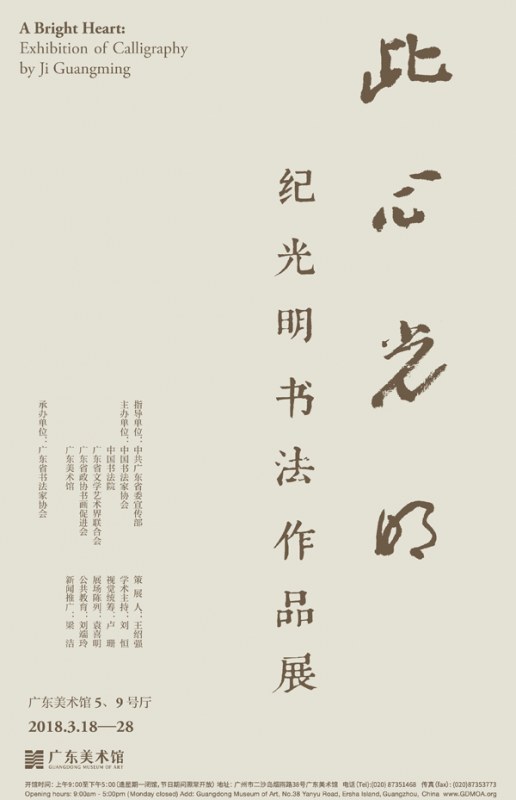 A Bright Heart:
Exhibition of Calligraphy
by Ji Guangming
此心光明
纪光明书法作品展
指导单位：中共广东省委宣传部
主办单位：中国书法家协会
中国书法院
广东省文学艺术界联合会
广东省政协书画促进会
广东美术馆
承办单位：广东省书法家协会
策展人：王绍强
学术主持：刘恒
视觉统筹：卢珊
展场陈列：袁喜明
公共教育：刘端玲
新闻推广：梁洁
广东美术馆 5、9 号厅
2018.3.18—28
广东美术馆
GUANGDONG MUSEUM OF ART
开馆时间：上午9:00至下午5:00（逢星期一闭馆，节日期间照常开放） 地址：广州市二沙岛烟雨路38号广东美术馆 电话(Tel):(020) 87351468 传真(fax):(020)87353773
Opening hours: 9:00am - 5:00pm (Monday closed) Add: Guangdong Museum of Art, No.38 Yanyu Road, Ersha Island, Guangzhou, China www.GDMOA.org